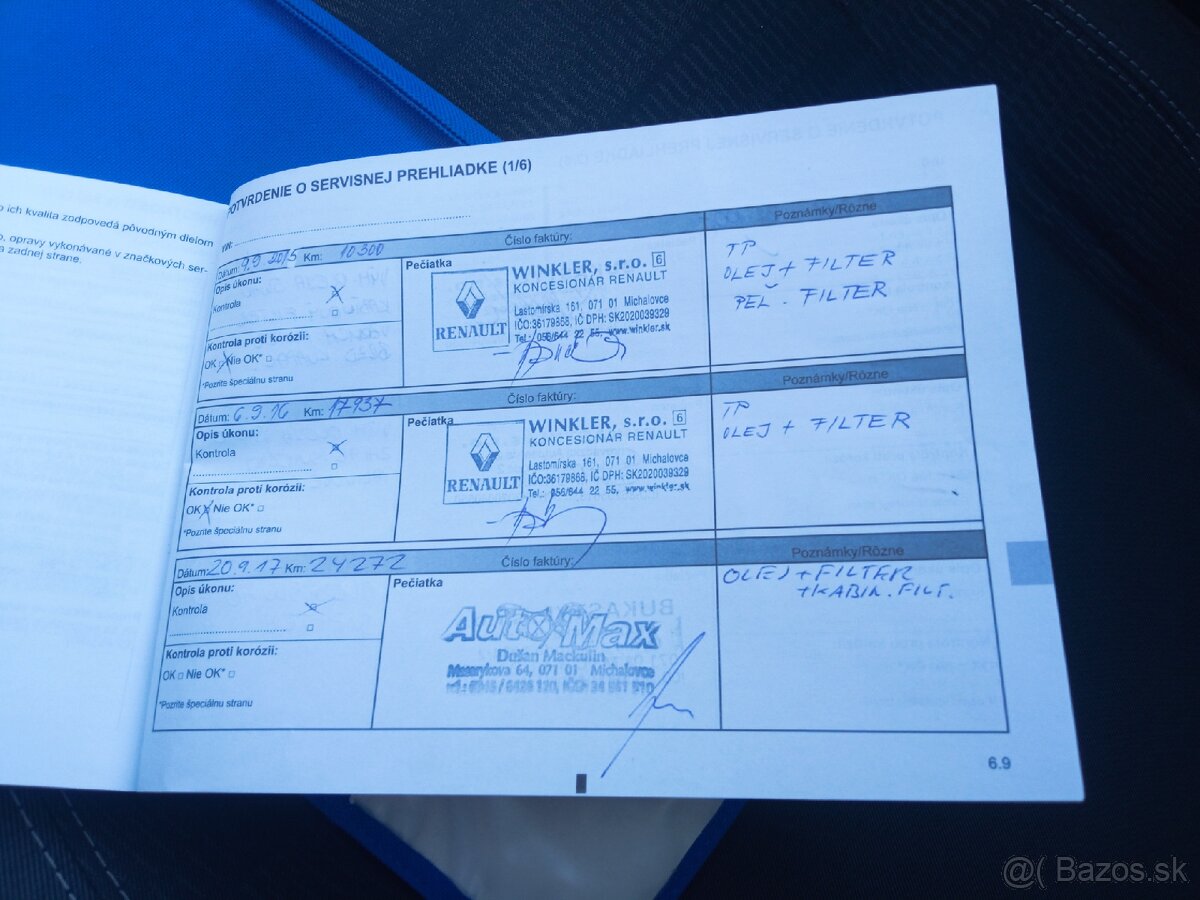 o ich kvalita zodpovedá pôvodným dielom
o, opravy vykonávané v značkových ser-
a zadnej strane.
POTVRDENIE O SERVISNEJ PREHLIADKE (1/6)
VIN:
Dátum: 9.9.2015 Km: 10300 Číslo faktúry: Poznámky/Rôzne
Opis úkonu:
Kontrola
Kontrola proti korózii:
OK Nie OK*
*Pozrite špeciálnu stranu
Pečiatka
RENAULT
WINKLER, s.r.o. 6
KONCESIONÁR RENAULT
Lastomírska 161, 071 01 Michalovce
IČO:36179868, IČ DPH: SK2020039329
Tel.: 056/644 22 55, www.winkler.sk
TP
OLEJ + FILTER
PEL. FILTER
Dátum: 6.9.16 Km: 17937 Číslo faktúry: Poznámky/Rôzne
Opis úkonu:
Kontrola
Kontrola proti korózii:
OK Nie OK*
*Pozrite špeciálnu stranu
Pečiatka
RENAULT
WINKLER, s.r.o. 6
KONCESIONÁR RENAULT
Lastomírska 161, 071 01 Michalovce
IČO:36179868, IČ DPH: SK2020039329
Tel.: 056/644 22 55, www.winkler.sk
TP
OLEJ + FILTER
Dátum: 20.9.17 Km: 24272 Číslo faktúry: Poznámky/Rôzne
Opis úkonu:
Kontrola
Kontrola proti korózii:
OK Nie OK*
*Pozrite špeciálnu stranu
Pečiatka
AutoMax
Dušan Mackulin
Masarykova 64, 071 01 Michalovce
OLEJ + FILTER
+KABIN. FILT.
6.9
@( Bazos.sk